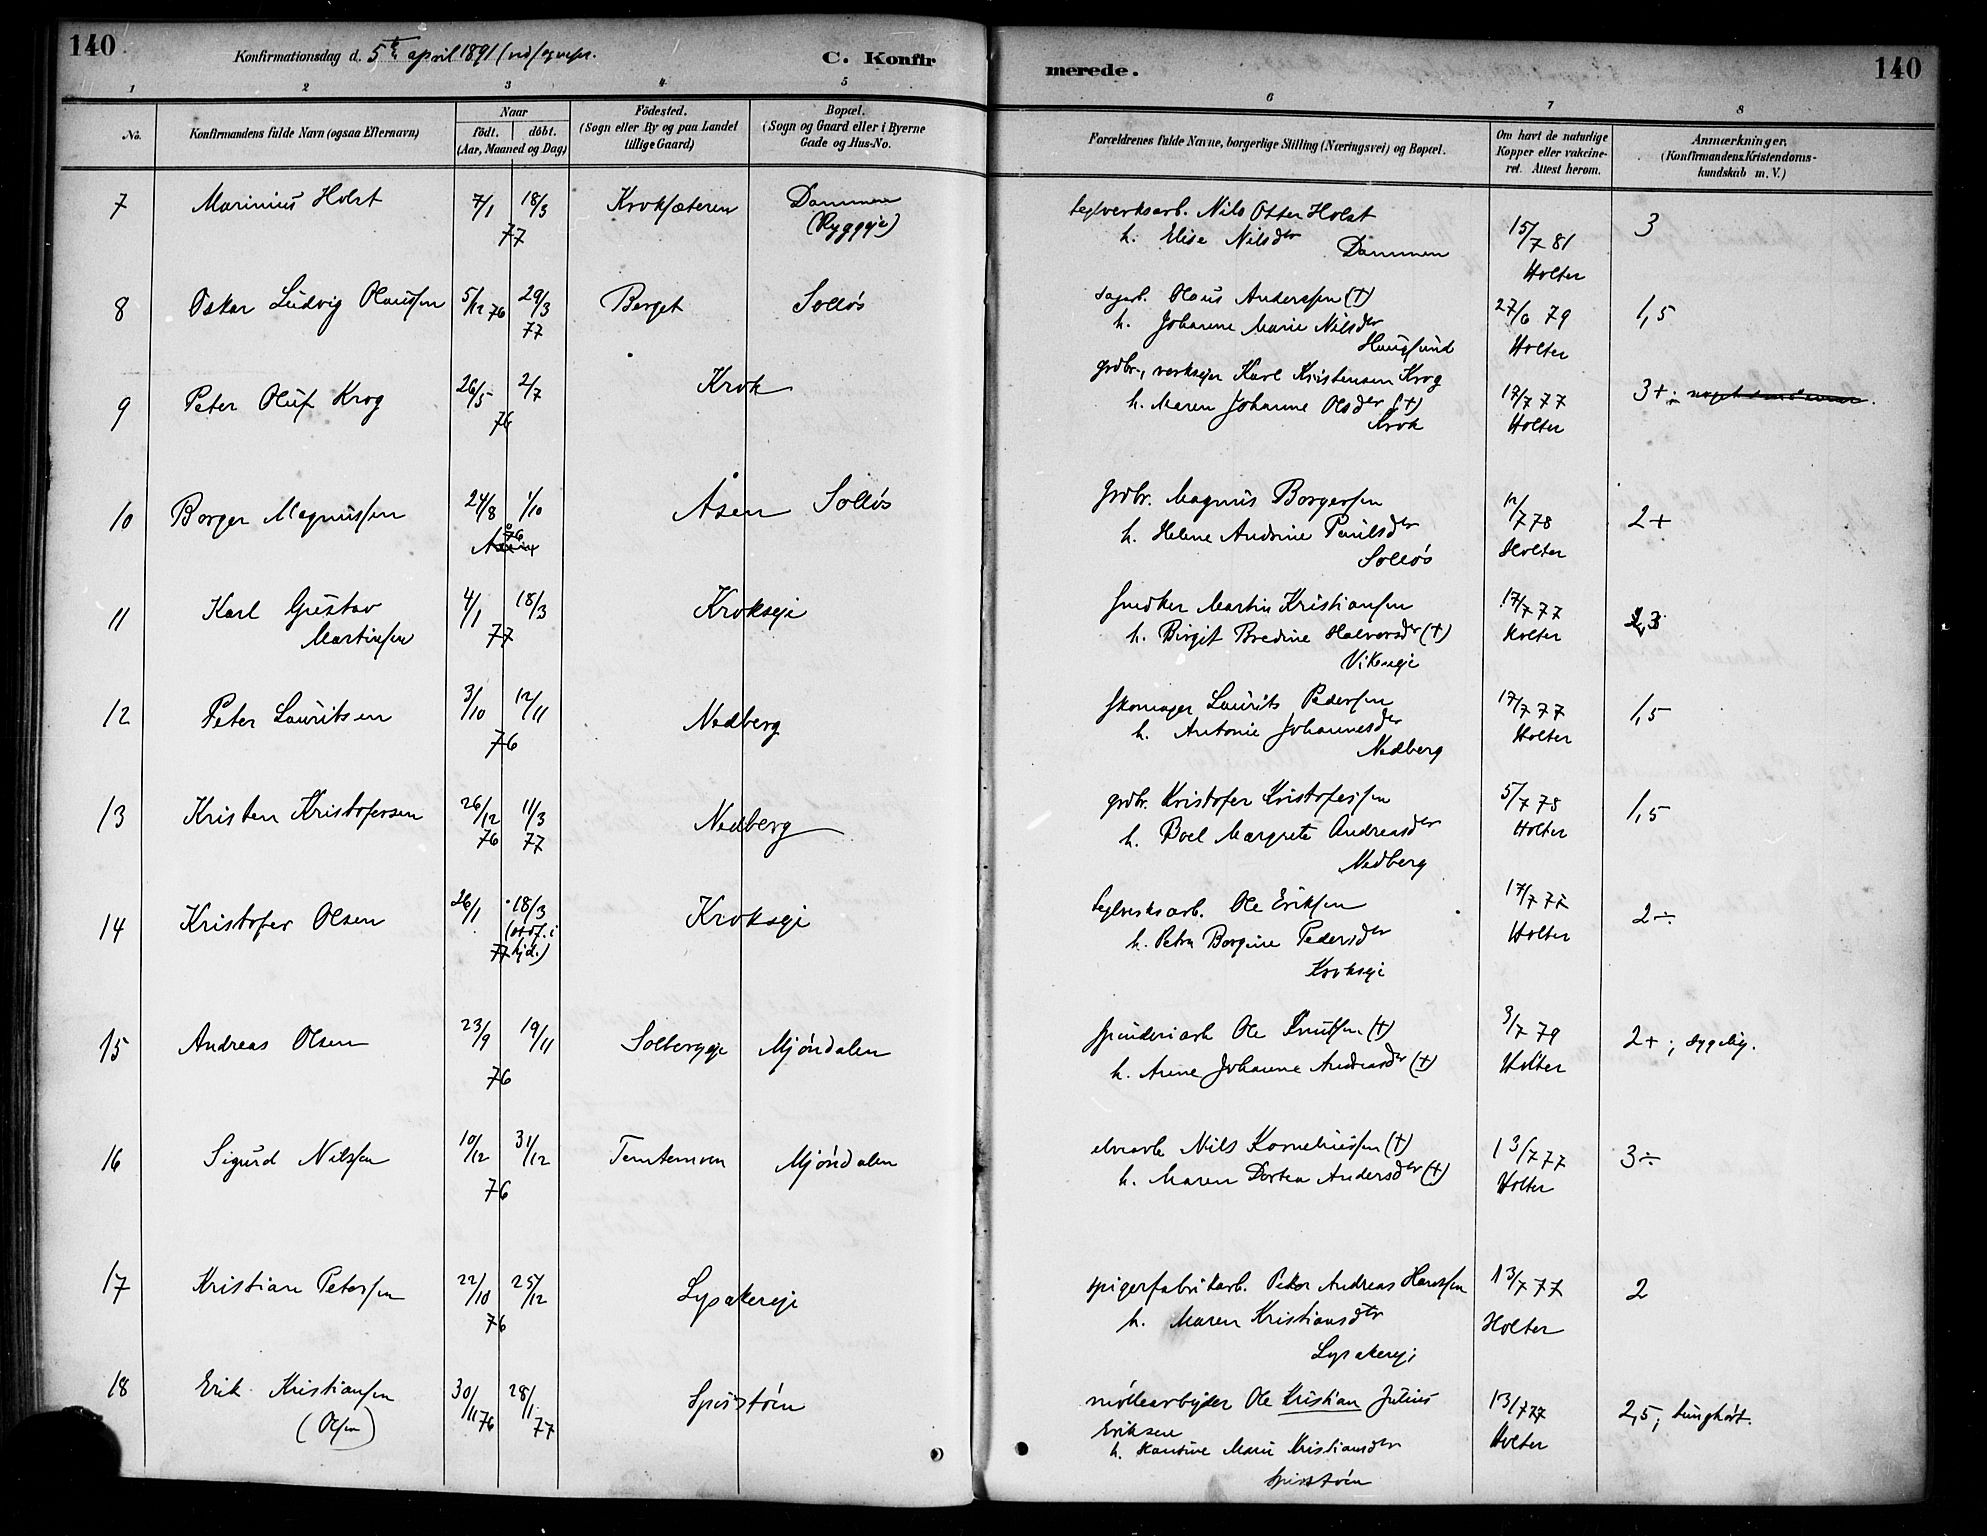 140
Konfirmationsdag d. 5te april 1891
C. Konfir
merede.
140
1 2 3 4 5 6 7 8
No.
Konfirmandens fulde Navn (ogsaa Efternavn)
Naar
födt. döbt.
(Aar, Maaned og Dag)
Födested.
(Sogn eller By og paa Landet
tillige Gaard)
Bopæl.
(Sogn og Gaard eller i Byerne
Gade og Hus-No.
Forældrenes fulde Navne, borgerlige Stilling (Næringsvei) og Bopæl.
Om havt de naturlige
Kopper eller vakcine-
ret. Attest herom.
Anmærkninger.
(Konfirmandens Kristendoms-
kundskab m. V.)
7 Marinius Holst 7/1 18/3 Kroksæteren Dammen teglverksarb. Nils Otter Holst 15/7 81 3
77 (Ryggeje) h. Elise Nilsdr Dammen Holter
8 Oskar Ludvig Olaussen 5/12 76 29/3 Berget Solløs sagarb. Olaus Anderssen (†) 27/6 79 1,5
77 h. Johanne Marie Nilsdr Holter
Haugsund
9 Peter Oluf Krog 26/5 2/7 Krok grdbr., verksejer Karl Kristensen Krog 17/7 77 3+
76 h. Maren Johanne Olsdr (†) Holter
Krok
10 Borger Magnussen 24/8 1/10 Åsen Solløs grdbr. Magnus Borgersen 12/7 78 2+
76 h. Helene Andrine Paulsdr Holter
Solløs
11 Karl Gustav 4/1 18/3 Krokseje snedker Martin Kristiansen 17/7 77
Martinsen 77 h. Birgit Bredine Halvorsdr (†) Holter
Vikseje
12 Peter Lauritsen 3/10 12/11 Nedberg skomager Laurits Pedersen 17/7 77 1,5
76 h. Antonie Johannesdr Holter
Nedberg
13 Kristen Kristofersen 26/12 11/3 Nedberg grdbr. Kristofer Kristofersen 5/7 78 1,5
76 77 h. Boel Margrete Andreasdr Holter
Nedberg
14 Kristofer Olsen 26/1 18/3 Krokseje teglverksarb. Ole Eriksen 17/7 77 2÷
(stadf. i
77 kjd.) h. Petra Borgine Pedersdr Holter
Krokseje
15 Andreas Olsen 23/9 19/11 Solbergeje Mjøndalen spinderiarb Ole Knutsen (†) 3/7 79 2+; sygelig.
76 h. Anne Johanne Andreasdr (†) Holter
16 Sigurd Nilssen 10/12 31/12 Temtemoen Mjøndalen elvearb Nils Korneliussen (†) 13/7 77 3÷
76 h. Maren Dortea Andersdr (†) Holter
17 Kristian Peterssen 22/10 25/12 Lysakereje spigerfabrikarb. Peter Andreas Hanssen 13/7 77 2
76 h. Maren Kristiansdr Holter
Lysakereje
18 Erik Kristiansen 30/11 76 28/1 77 Spirstøen møllearbejder Ole Kristian Julius 13/7 77 2,5; tunghørt.
(Olsen) Eriksen
h. Hansine Marie Kristiansdr Holter
Spirstøen